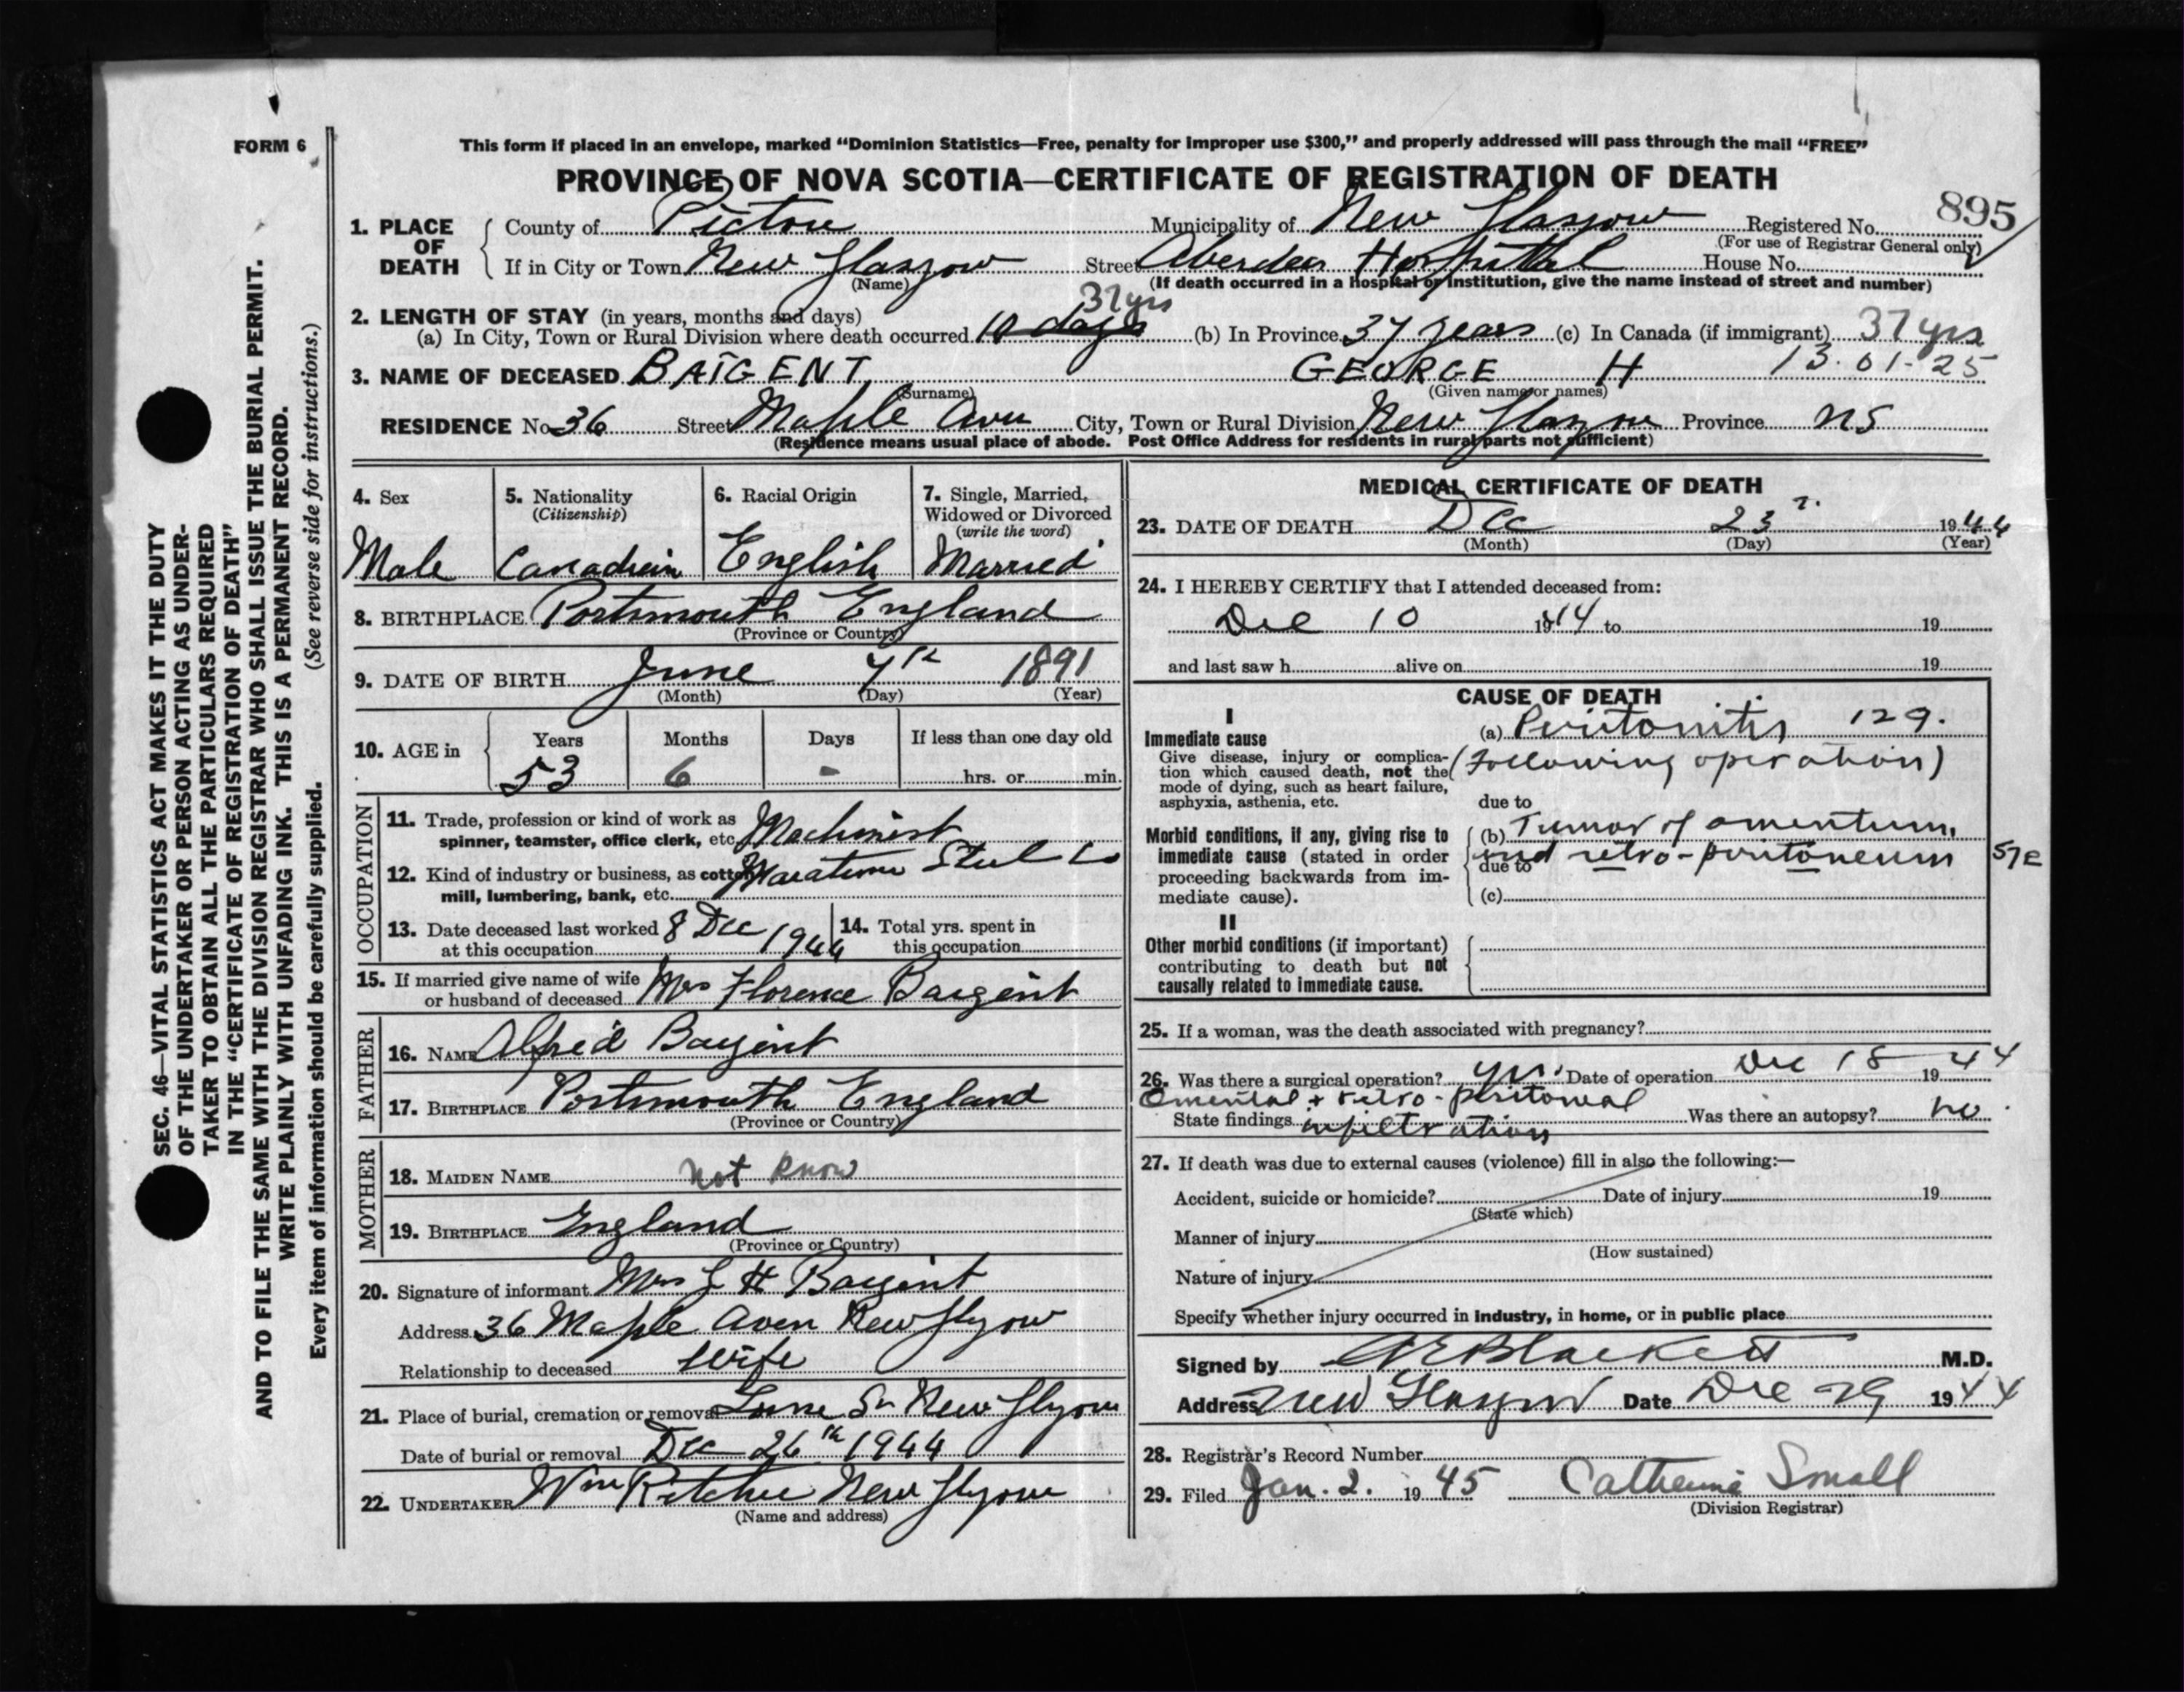 FORM 6
This form if placed in an envelope, marked “Dominion Statistics—Free, penalty for improper use $300,” and properly addressed will pass through the mail “FREE”
PROVINCE OF NOVA SCOTIA—CERTIFICATE OF REGISTRATION OF DEATH
895
1. PLACE OF DEATH County of Pictou Municipality of New Glasgow Registered No.
(For use of Registrar General only)
If in City or Town New Glasgow Street Aberdeen Hospital House No.
(Name) (If death occurred in a hospital or institution, give the name instead of street and number)
37 yrs
2. LENGTH OF STAY (in years, months and days)
(a) In City, Town or Rural Division where death occurred 10 days (b) In Province 37 years (c) In Canada (if immigrant) 37 yrs
3. NAME OF DECEASED BAIGENT, GEORGE H 13-01-25
(Surname) (Given name or names)
RESIDENCE No 36 Street Maple Aven City, Town or Rural Division New Glasgow Province NS
(Residence means usual place of abode. Post Office Address for residents in rural parts not sufficient)
4. Sex 5. Nationality 6. Racial Origin 7. Single, Married,
(Citizenship) Widowed or Divorced
(write the word)
Male Canadian English Married
8. BIRTHPLACE Portsmouth England
(Province or Country)
9. DATE OF BIRTH June 7th 1891
(Month) (Day) (Year)
10. AGE in Years Months Days If less than one day old
53 6 - hrs. or min.
OCCUPATION
11. Trade, profession or kind of work as
spinner, teamster, office clerk, etc. Machinist
12. Kind of industry or business, as cotton
mill, lumbering, bank, etc. Maratime Steel Co
13. Date deceased last worked 8 Dec 1944
at this occupation
14. Total yrs. spent in
this occupation
15. If married give name of wife
or husband of deceased Mrs Florence Baigent
FATHER
16. NAME Alfred Baigent
17. BIRTHPLACE Portsmouth England
(Province or Country)
MOTHER
18. MAIDEN NAME not know
19. BIRTHPLACE England
(Province or Country)
20. Signature of informant Mrs G H Baigent
Address 36 Maple Aven New Glgow
Relationship to deceased wife
21. Place of burial, cremation or removal New Glgow
Date of burial or removal Dec 26th 1944
22. UNDERTAKER Wm Ritchie New Glgow
(Name and address)
MEDICAL CERTIFICATE OF DEATH
23. DATE OF DEATH Dec 23 1944
(Month) (Day) (Year)
24. I HEREBY CERTIFY that I attended deceased from:
Dec 10 1944 to 19
and last saw h alive on 19
CAUSE OF DEATH
I
Immediate cause (a) Peritonitis 129.
Give disease, injury or complica-
tion which caused death, not the
mode of dying, such as heart failure,
asphyxia, asthenia, etc.
(Following operation)
due to
Morbid conditions, if any, giving rise to
immediate cause (stated in order
proceeding backwards from im-
mediate cause).
(b) Tumor of omentum,
due to and retro-peritoneum 57E
(c)
II
Other morbid conditions (if important)
contributing to death but not
causally related to immediate cause.
25. If a woman, was the death associated with pregnancy?
26. Was there a surgical operation? yes. Date of operation Dec 18 1944
Omental + retro-peritoneal
State findings infiltration Was there an autopsy? no.
27. If death was due to external causes (violence) fill in also the following:—
Accident, suicide or homicide? Date of injury 19
(State which)
Manner of injury
(How sustained)
Nature of injury
Specify whether injury occurred in industry, in home, or in public place
Signed by Blackett M.D.
Address New Glasgow Date Dec 29 1944
28. Registrar's Record Number
29. Filed Jan. 2. 1945 Catherine Small
(Division Registrar)
SEC. 46—VITAL STATISTICS ACT MAKES IT THE DUTY
OF THE UNDERTAKER OR PERSON ACTING AS UNDER-
TAKER TO OBTAIN ALL THE PARTICULARS REQUIRED
IN THE “CERTIFICATE OF REGISTRATION OF DEATH”
AND TO FILE THE SAME WITH THE DIVISION REGISTRAR WHO SHALL ISSUE THE BURIAL PERMIT.
WRITE PLAINLY WITH UNFADING INK. THIS IS A PERMANENT RECORD.
Every item of information should be carefully supplied. (See reverse side for instructions.)